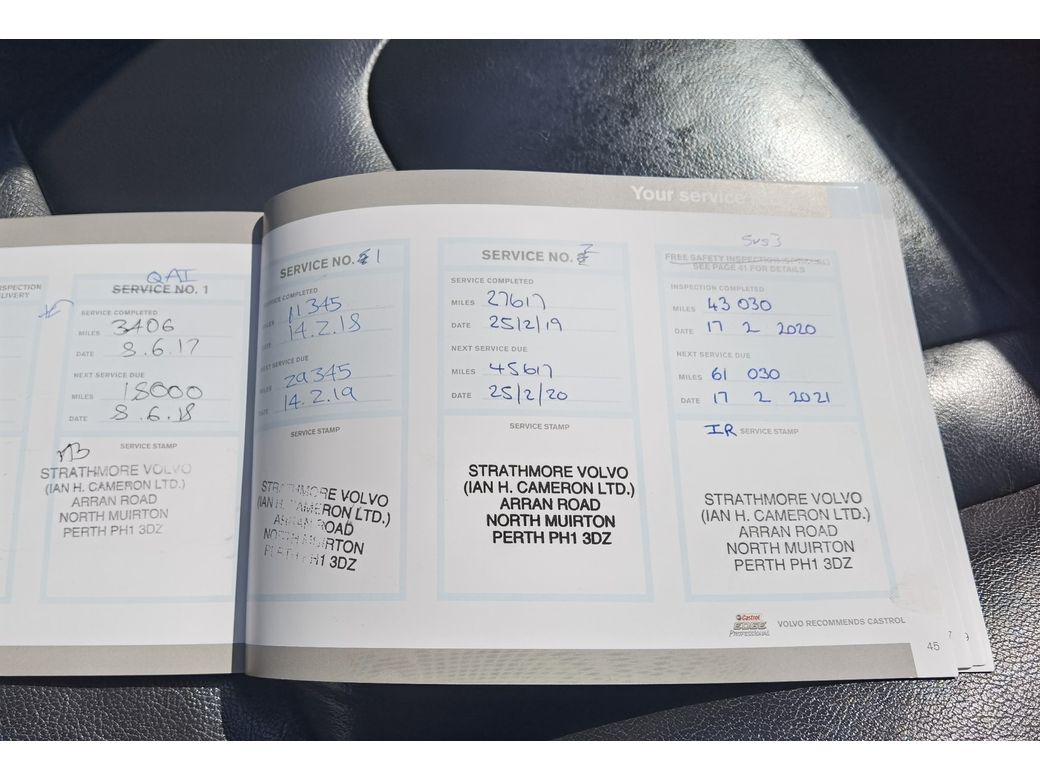 Your service
INSPECTION
DELIVERY
QAI
SERVICE NO. 1
SERVICE COMPLETED
MILES 3406
DATE 8.6.17
NEXT SERVICE DUE
MILES 18000
DATE 8.6.18
SERVICE STAMP
STRATHMORE VOLVO
(IAN H. CAMERON LTD.)
ARRAN ROAD
NORTH MUIRTON
PERTH PH1 3DZ
SERVICE NO. 1
SERVICE COMPLETED
MILES 11345
DATE 14.2.18
NEXT SERVICE DUE
MILES 29345
DATE 14.2.19
SERVICE STAMP
STRATHMORE VOLVO
(IAN H. CAMERON LTD.)
ARRAN ROAD
NORTH MUIRTON
PERTH PH1 3DZ
SERVICE NO. 2
SERVICE COMPLETED
MILES 27617
DATE 25/2/19
NEXT SERVICE DUE
MILES 45617
DATE 25/2/20
SERVICE STAMP
STRATHMORE VOLVO
(IAN H. CAMERON LTD.)
ARRAN ROAD
NORTH MUIRTON
PERTH PH1 3DZ
Svs3
FREE SAFETY INSPECTION
SEE PAGE 41 FOR DETAILS
INSPECTION COMPLETED
MILES 43 030
DATE 17 2 2020
NEXT SERVICE DUE
MILES 61 030
DATE 17 2 2021
IR SERVICE STAMP
STRATHMORE VOLVO
(IAN H. CAMERON LTD.)
ARRAN ROAD
NORTH MUIRTON
PERTH PH1 3DZ
Castrol
EDGE
PROFESSIONAL
VOLVO RECOMMENDS CASTROL
45
7
9